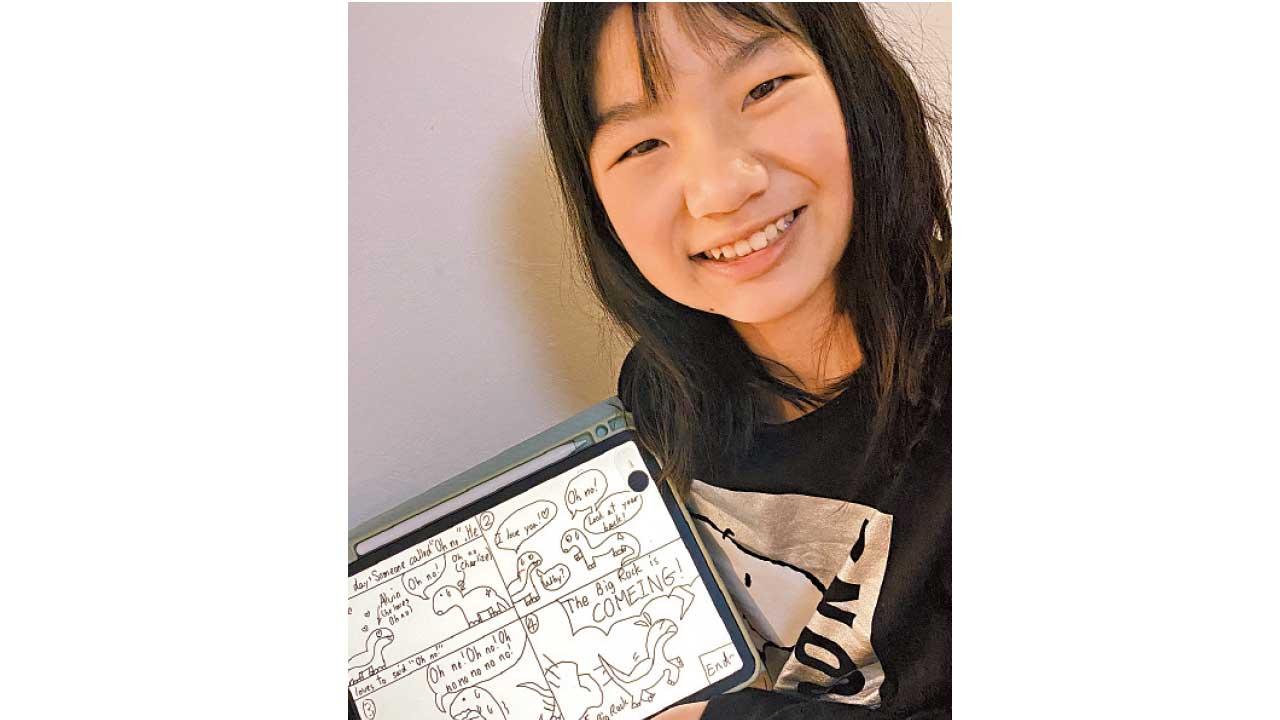 day, Someone called "Oh no". He
Oh no
(Charlize)
Oh no!
Alvin
(he loves
Oh no)
loves to said "Oh no"
②
I love you!♡
Oh no!
Look at your
back!
Why?
③
Oh no! Oh no! Oh
no no no no no!
④
The Big Rock is
COMEING!
Big Rock
End~